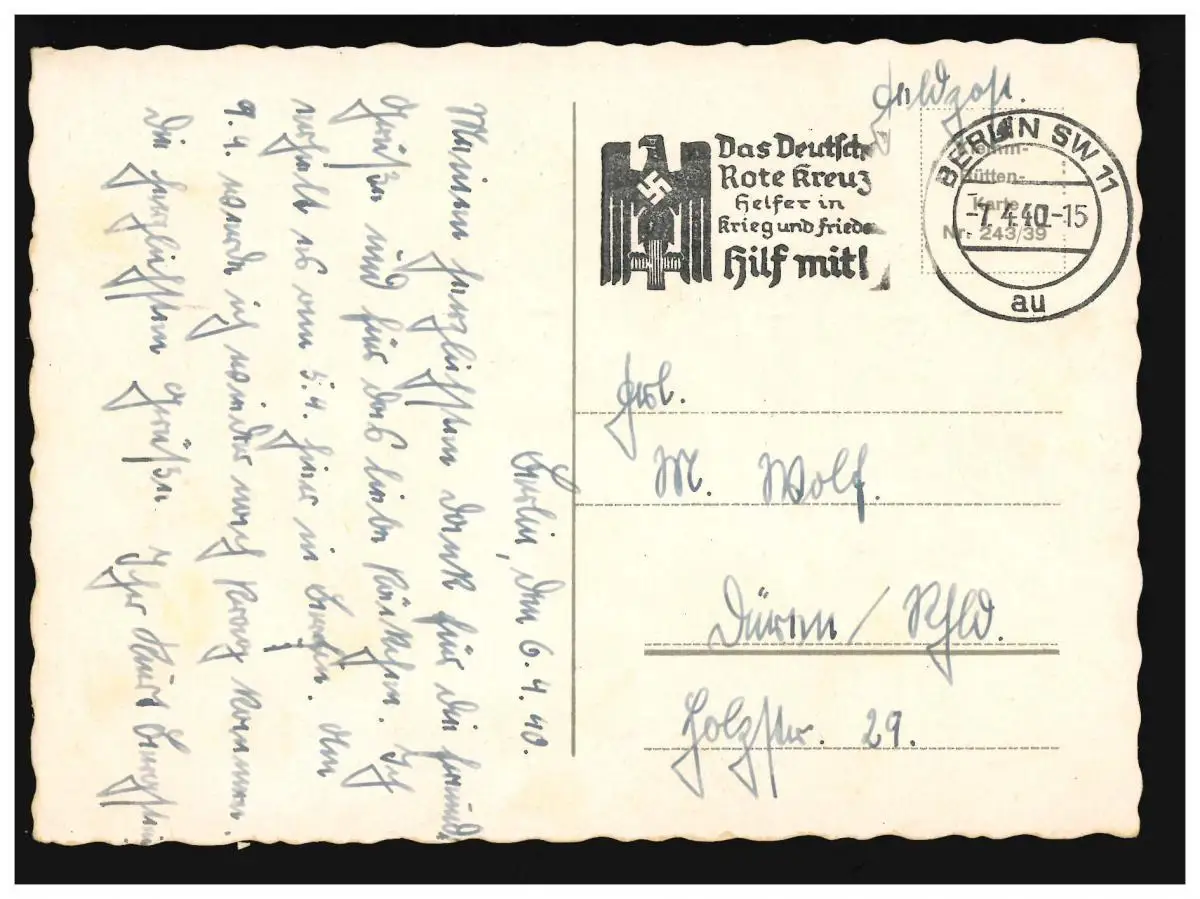 Feldpost.
Das Deutsche
Rote Kreuz
Helfer in
Krieg und Frieden
Hilf mit!
BERLIN SW 11
-7.4.40.-15
au
Bütten-
Karte
Nr. 243/39
Frl.
M. Wolf.
Düren / Rhld.
Holzstr. 29.
Berlin, den 6.4.40.
Meinen herzlichsten Dank für die freundl.
Grüße und für das liebe Kärtchen. Ich
erhielt es am 5.4. hier in Berlin. Am
9.4. werde ich wieder nach kommen.
Die herzlichsten Grüße Ihr Kurt